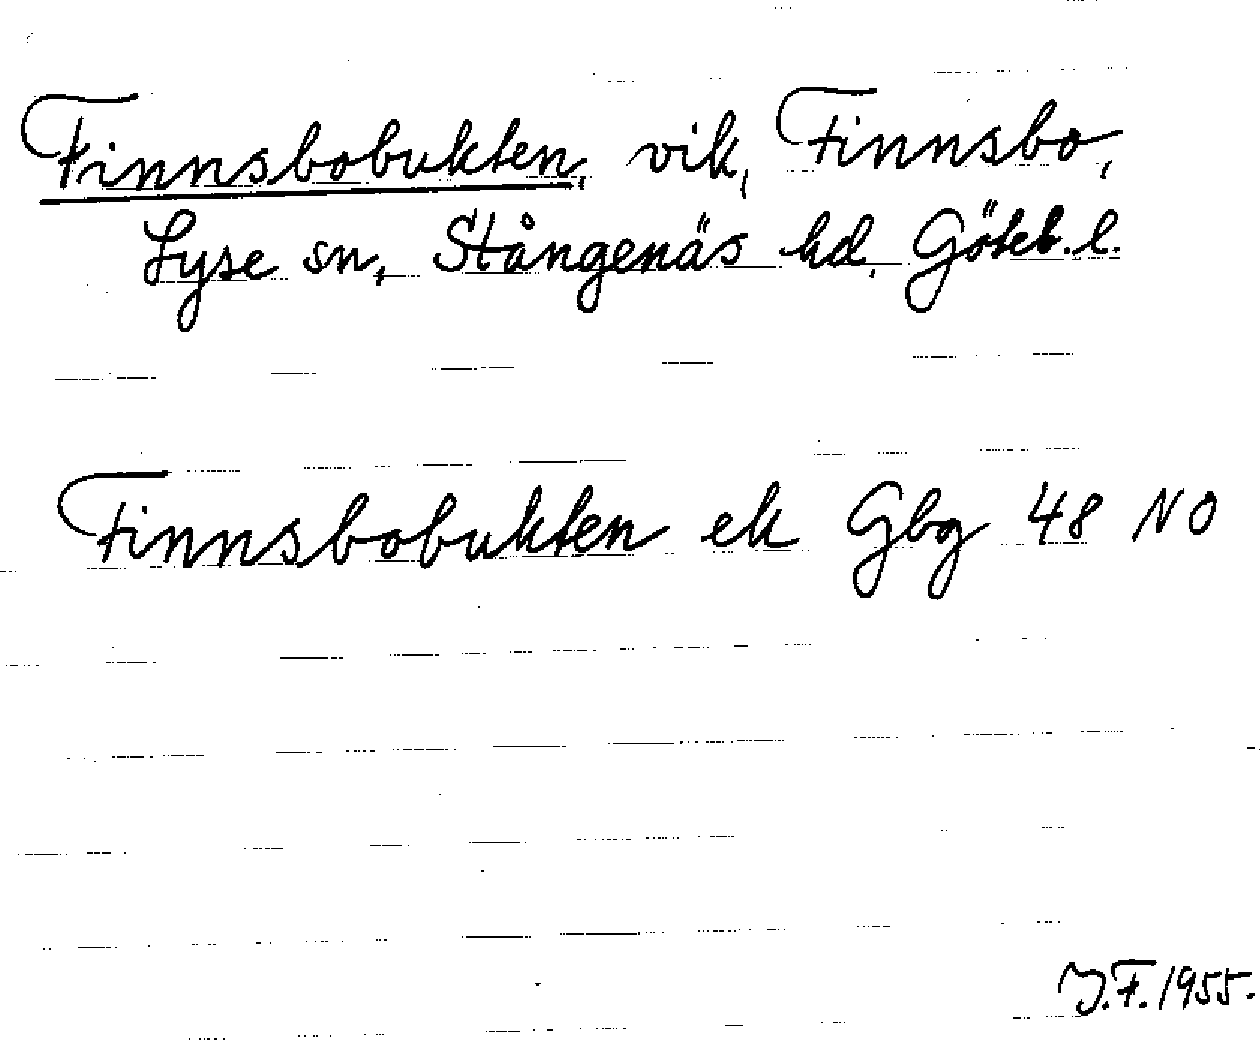 Finnsbobukten, vik, Finnsbo,
Lyse sn, Stångenäs hd, Göteb. l.
Finnsbobukten ek Gbg 48 NO
J.F. 1955.